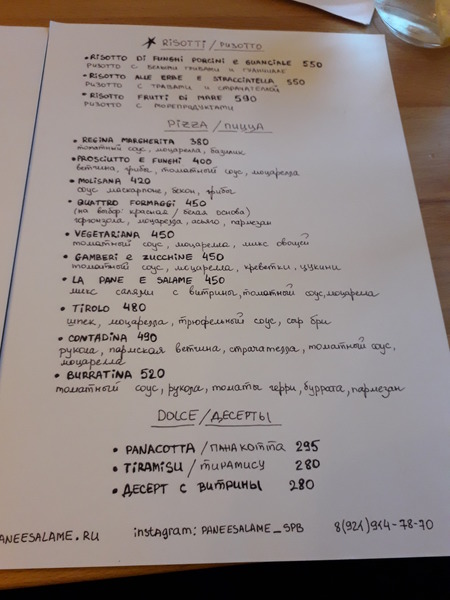 RISOTTI / РИЗОТТО
• RISOTTO DI FUNGHI PORCINI E GUANCIALE 550
РИЗОТТО С БЕЛЫМИ ГРИБАМИ И ГУАНЧИАЛЕ
• RISOTTO ALLE ERBE E STRACCIATELLA 550
РИЗОТТО С ТРАВАМИ И СТРАЧАТЕЛЛОЙ
• RISOTTO FRUTTI DI MARE 590
РИЗОТТО С МОРЕПРОДУКТАМИ
PIZZA / ПИЦЦА
• REGINA MARGHERITA 380
томатный соус, моцарелла, базилик
• PROSCIUTTO E FUNGHI 400
ветчина, грибы, томатный соус, моцарелла
• MOLISANA 420
соус маскарпоне, бекон, грибы
• QUATTRO FORMAGGI 450
(на выбор: красная / белая основа)
горгонзола, моцарелла, асьяго, пармезан
• VEGETARIANA 450
томатный соус, моцарелла, микс овощей
• GAMBERI E ZUCCHINE 450
томатный соус, моцарелла, креветки, цукини
• LA PANE E SALAME 450
микс салями с витрины, томатный соус, моцарелла
• TIROLO 480
шпек, моцарелла, трюфельный соус, сыр бри
• CONTADINA 490
рукола, пармская ветчина, страчателла, томатный соус,
моцарелла
• BURRATINA 520
томатный соус, рукола, томаты черри, буррата, пармезан
DOLCE / ДЕСЕРТЫ
• PANACOTTA / ПАНАКОТТА 295
• TIRAMISU / ТИРАМИСУ 280
• ДЕСЕРТ С ВИТРИНЫ 280
ANEESALAME.RU instagram: PANEESALAME_SPB 8(921)914-78-70